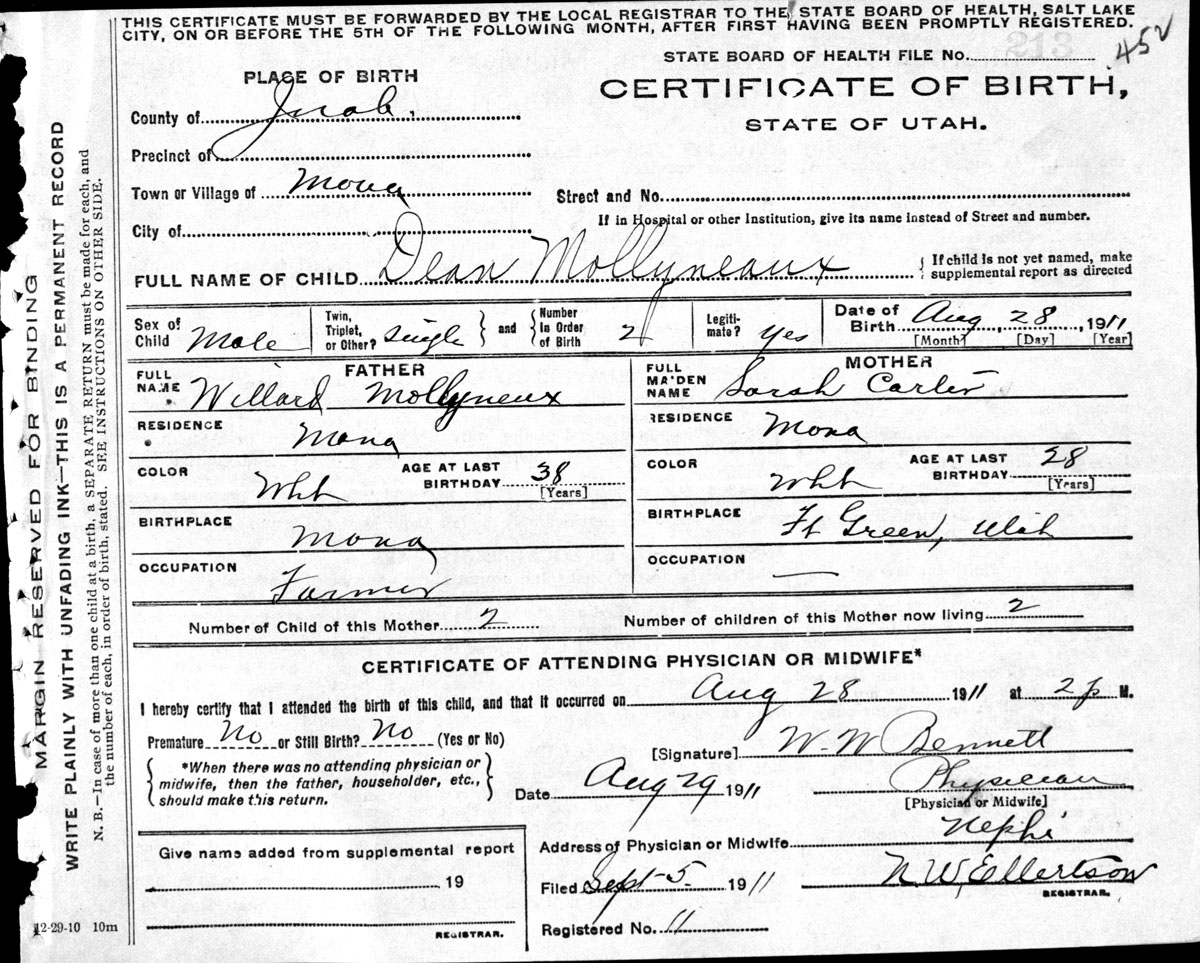 THIS CERTIFICATE MUST BE FORWARDED BY THE LOCAL REGISTRAR TO THE STATE BOARD OF HEALTH, SALT LAKE
CITY, ON OR BEFORE THE 5TH OF THE FOLLOWING MONTH, AFTER FIRST HAVING BEEN PROMPTLY REGISTERED.
213
452
STATE BOARD OF HEALTH FILE No.
PLACE OF BIRTH
CERTIFICATE OF BIRTH,
STATE OF UTAH.
County of Juab.
Precinct of
Town or Village of Mona
Street and No.
If in Hospital or other Institution, give its name instead of Street and number.
City of
FULL NAME OF CHILD Dean Mollyneaux
{ If child is not yet named, make
supplemental report as directed
Sex of Child Male
Twin, Triplet, or Other? Single } and { Number In Order of Birth 2
Legiti- mate? Yes
Date of Birth Aug, 28, 1911
[Month] [Day] [Year]
FATHER
FULL NAME Willard Mollyneux
RESIDENCE Mona
COLOR Wht AGE AT LAST BIRTHDAY 38
[Years]
BIRTHPLACE Mona
OCCUPATION Farmer
MOTHER
FULL MAIDEN NAME Sarah Carter
RESIDENCE Mona
COLOR Wht AGE AT LAST BIRTHDAY 28
[Years]
BIRTHPLACE Ft Green, Utah
OCCUPATION —
Number of Child of this Mother 2 Number of children of this Mother now living 2
CERTIFICATE OF ATTENDING PHYSICIAN OR MIDWIFE*
I hereby certify that I attended the birth of this child, and that it occurred on Aug 28 1911 at 2 p M.
Premature No or Still Birth? No (Yes or No)
{ *When there was no attending physician or
midwife, then the father, householder, etc.,
should make this return. }
[Signature] W. W Bennett
Date Aug 29 1911
Physician
[Physician or Midwife]
Address of Physician or Midwife Nephi
Give name added from supplemental report
19
REGISTRAR.
Filed Sept-5. 1911 N. W. Ellertson
REGISTRAR.
Registered No. 11
12-29-10 10m
MARGIN RESERVED FOR BINDING
WRITE PLAINLY WITH UNFADING INK—THIS IS A PERMANENT RECORD
N. B.—In case of more than one child at a birth, a SEPARATE RETURN must be made for each, and
the number of each, in order of birth, stated. SEE INSTRUCTIONS ON OTHER SIDE.